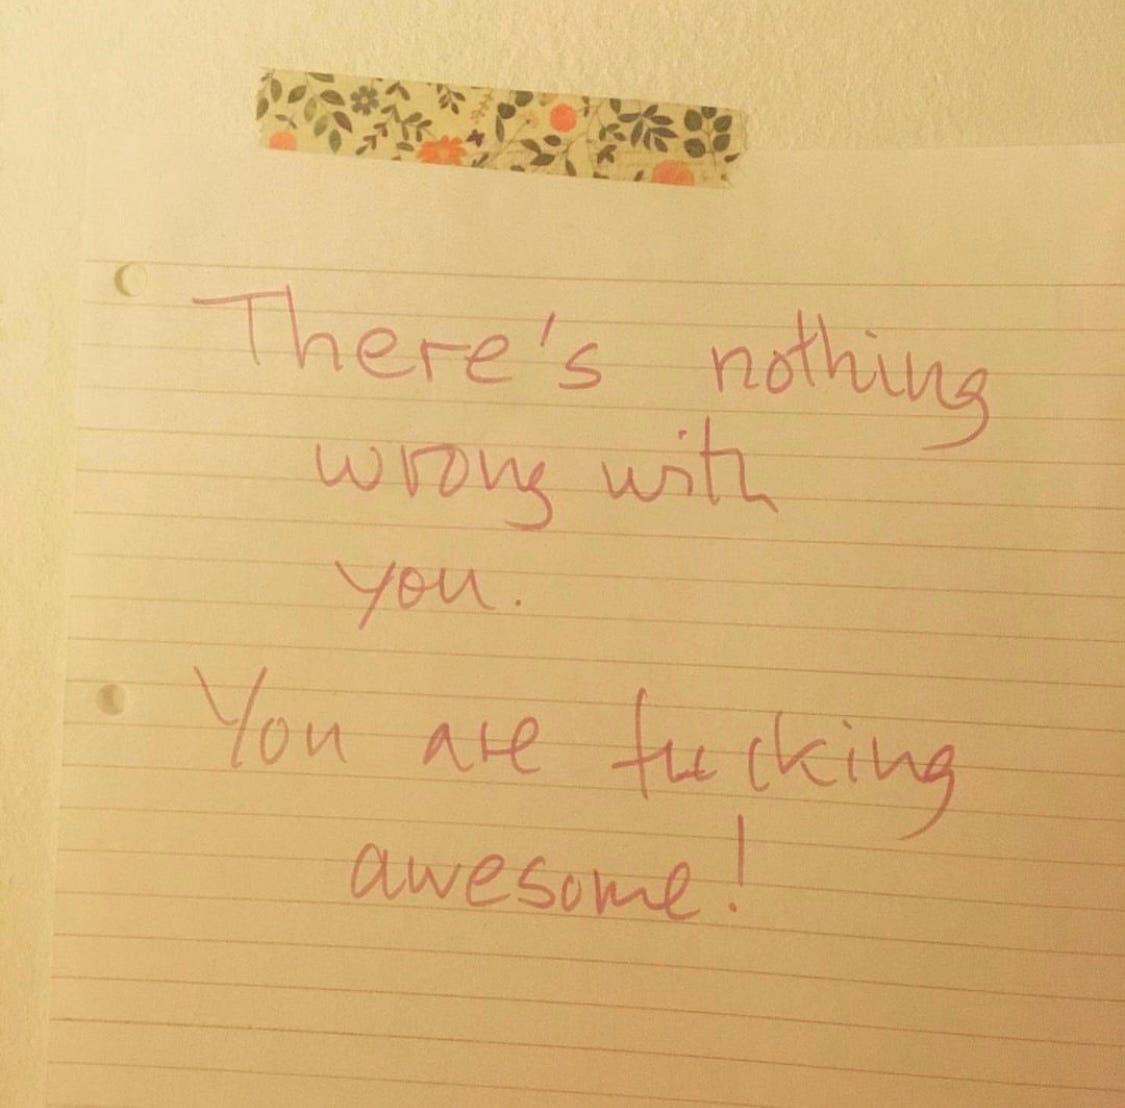 There's nothing
wrong with
you.
You are fucking
awesome!